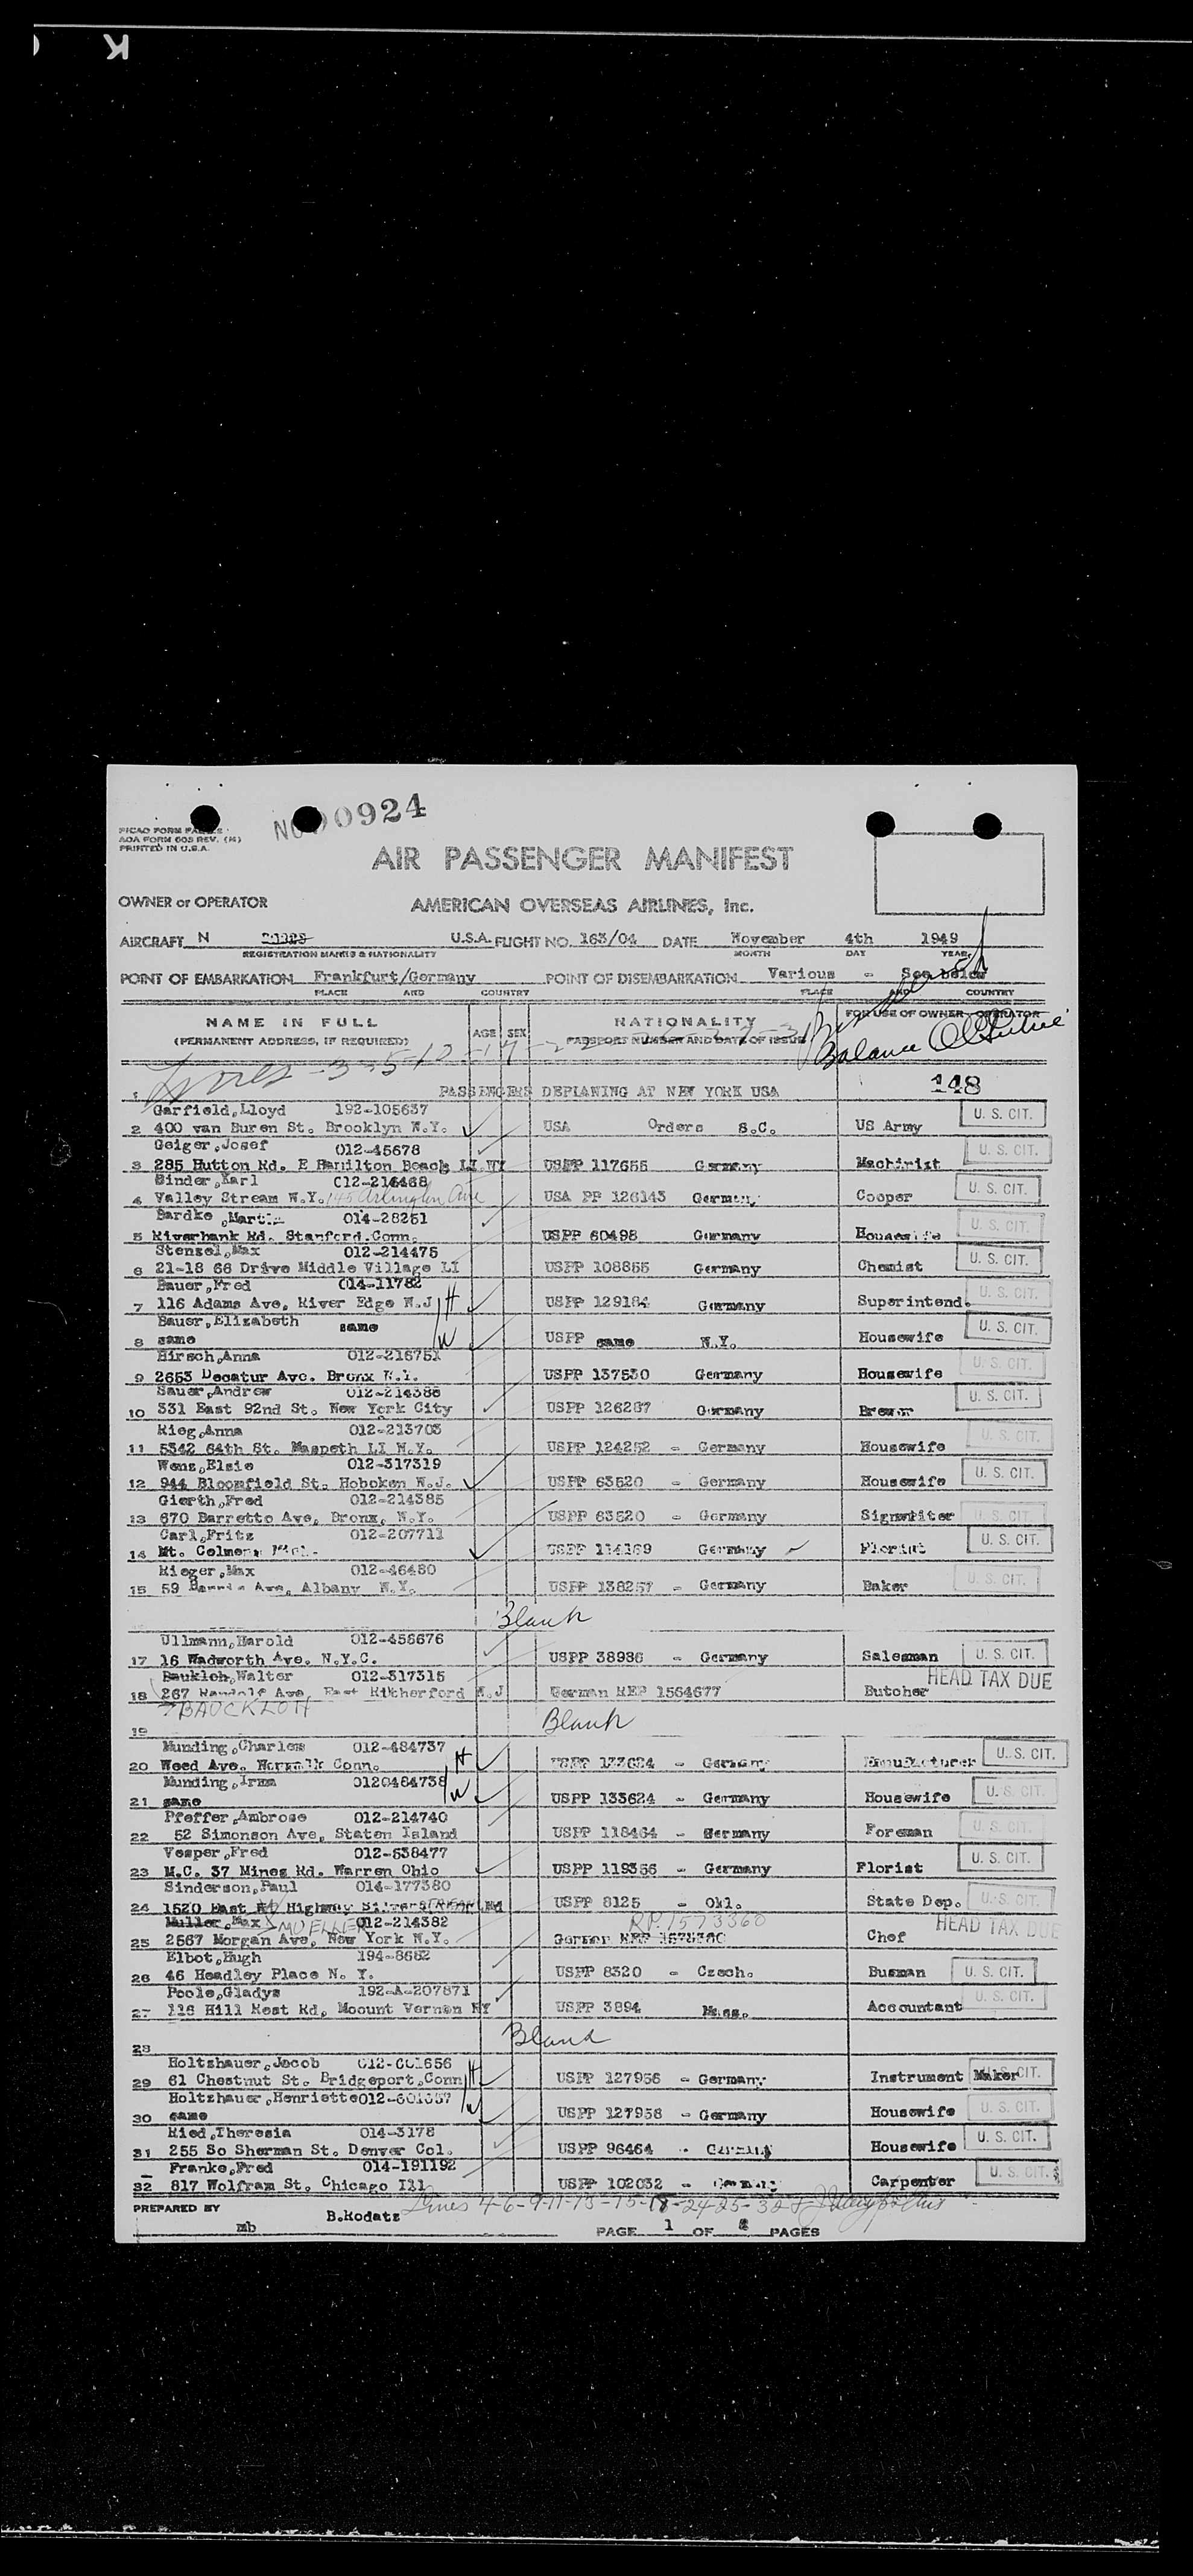 K
No 00924
PICAO FORM
AOA FORM 605 REV. (M)
PRINTED IN U.S.A.
AIR PASSENGER MANIFEST
OWNER or OPERATOR AMERICAN OVERSEAS AIRLINES, Inc.
AIRCRAFT N U.S.A. FLIGHT NO. 163/04 DATE November 4th 1949
REGISTRATION MARKS & NATIONALITY MONTH DAY YEAR
POINT OF EMBARKATION Frankfurt/Germany POINT OF DISEMBARKATION Various - See below
PLACE AND COUNTRY PLACE AND COUNTRY
NAME IN FULL AGE SEX NATIONALITY FOR USE OF OWNER OPERATOR
(PERMANENT ADDRESS, IF REQUIRED) PASSPORT NUMBER AND DATE OF ISSUE Balance
Lines
1 PASSENGERS DEPLANING AT NEW YORK USA 148
Garfield,Lloyd 192-105637 U. S. CIT.
2 400 van Buren St. Brooklyn N.Y. USA Orders S.C. US Army
Geiger,Josef 012-45678 U. S. CIT.
3 285 Hutton Rd. E Hamilton Beach LI NY USPP 117655 Germany Machinist
Binder,Karl 012-214468 U. S. CIT.
4 Valley Stream N.Y. 145 Arlington Ave USA PP 126143 Germany Cooper
Bardke,Martin 014-28251 U. S. CIT.
5 Riverbank Rd. Stanford.Conn. USPP 60498 Germany Housewife
Stenzel,Max 012-214475 U. S. CIT.
6 21-18 66 Drive Middle Village LI USPP 108855 Germany Chemist
Bauer,Fred 014-11782 H U. S. CIT.
7 116 Adams Ave, River Edge N.J USPP 129184 Germany Superintend.
Bauer,Elizabeth same U. S. CIT.
8 same W USPP same N.Y. Housewife
Hirsch,Anna 012-216751 U. S. CIT.
9 2653 Decatur Ave. Bronx N.Y. USPP 137530 Germany Housewife
Sauer,Andrew 012-214386 U. S. CIT.
10 331 East 92nd St. New York City USPP 126287 Germany Brewer
Rieg,Anna 012-213703 U. S. CIT.
11 5342 64th St. Maspeth LI N.Y. USPP 124252 - Germany Housewife
Wenz,Elsie 012-317319 U. S. CIT.
12 944 Bloomfield St. Hoboken N.J. USPP 63520 - Germany Housewife
Gierth,Fred 012-214385
13 670 Barretto Ave, Bronx, N.Y. USPP 63520 - Germany Signwriter U. S. CIT.
Carl,Fritz 012-207711 U. S. CIT.
14 Mt. USPP 114169 Germany Florist
Rieger,Max 012-46480 U. S. CIT.
15 59 Ave, Albany N.Y. USPP 138257 - Germany Baker
Blank
Ullmann,Harold 012-456676 U. S. CIT.
17 16 Wadworth Ave. N.Y.C. USPP 38986 - Germany Salesman
Bauklch,Walter 012-317315 HEAD TAX DUE
18 267 Ave, East Rutherford N.J German REP 1564677 Butcher
BAUCKLOH
19 Blank
Munding,Charles 012-484737 H U. S. CIT.
20 Weed Ave. Norwalk Conn. USPP 133624 - Germany Manufacturer
Munding,Irma 0120484738 U. S. CIT.
21 same W USPP 133624 - Germany Housewife
Pfeffer,Ambrose 012-214740 U. S. CIT.
22 52 Simonson Ave, Staten Island USPP 118464 - Germany Foreman
Vesper,Fred 012-538477 U. S. CIT.
23 M.C. 37 Mines Rd. Warren Ohio USPP 119356 - Germany Florist
Sinderson,Paul 014-177380 U. S. CIT.
24 1520 East Highway Silver Md USPP 8125 - Okl. State Dep.
Muller,Max MUELLER 012-214382 RP.1573360 HEAD TAX DUE
25 2567 Morgan Ave, New York N.Y. German REP 1573360 Chef
Elbot,Hugh 194-8682
26 46 Headley Place N. Y. USPP 8320 - Czech. Busman U. S. CIT.
Poole,Gladys 192-A-207871 U. S. CIT.
27 116 Hill Rest Rd, Moount Vernon NY USPP 3894 Mass. Accountant
28 Blank
Holtzhauer,Jacob 012-601656 H U. S. CIT.
29 61 Chestnut St. Bridgeport,Conn USPP 127956 - Germany Instrument Maker
Holtzhauer,Henriette 012-601657 U. S. CIT.
30 same W USPP 127958 - Germany Housewife
Ried,Theresia 014-3178 U. S. CIT.
31 255 So Sherman St. Denver Col. USPP 96464 - Germany Housewife
Franke,Fred 014-191192 U. S. CIT.
32 817 Wolfram St. Chicago Ill USPP 102032 - Germany Carpenter
Lines 4-6-9-11-13-15-18-24-25-32
PREPARED BY B.Kodatz
mb PAGE 1 OF PAGES